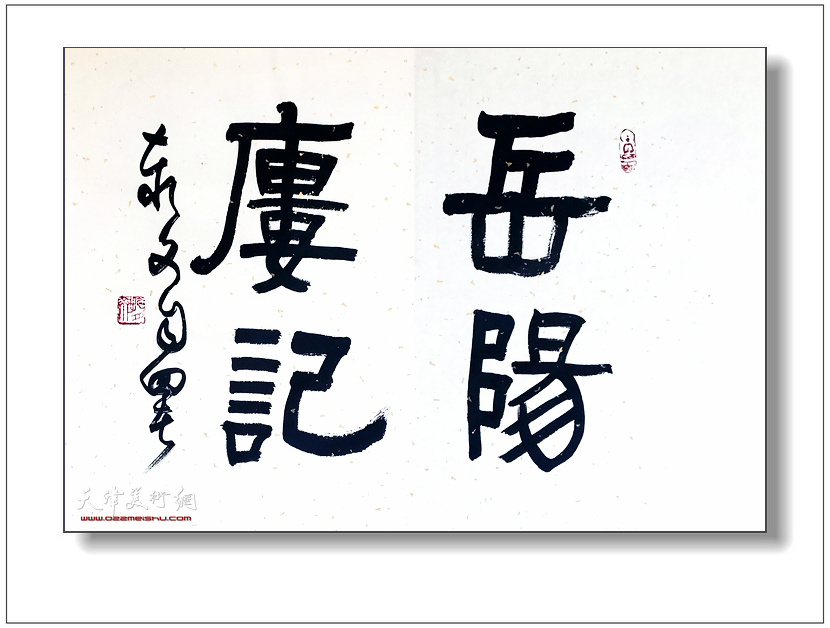 岳陽
廔記
文自署
天津美術網
www.022meishu.com